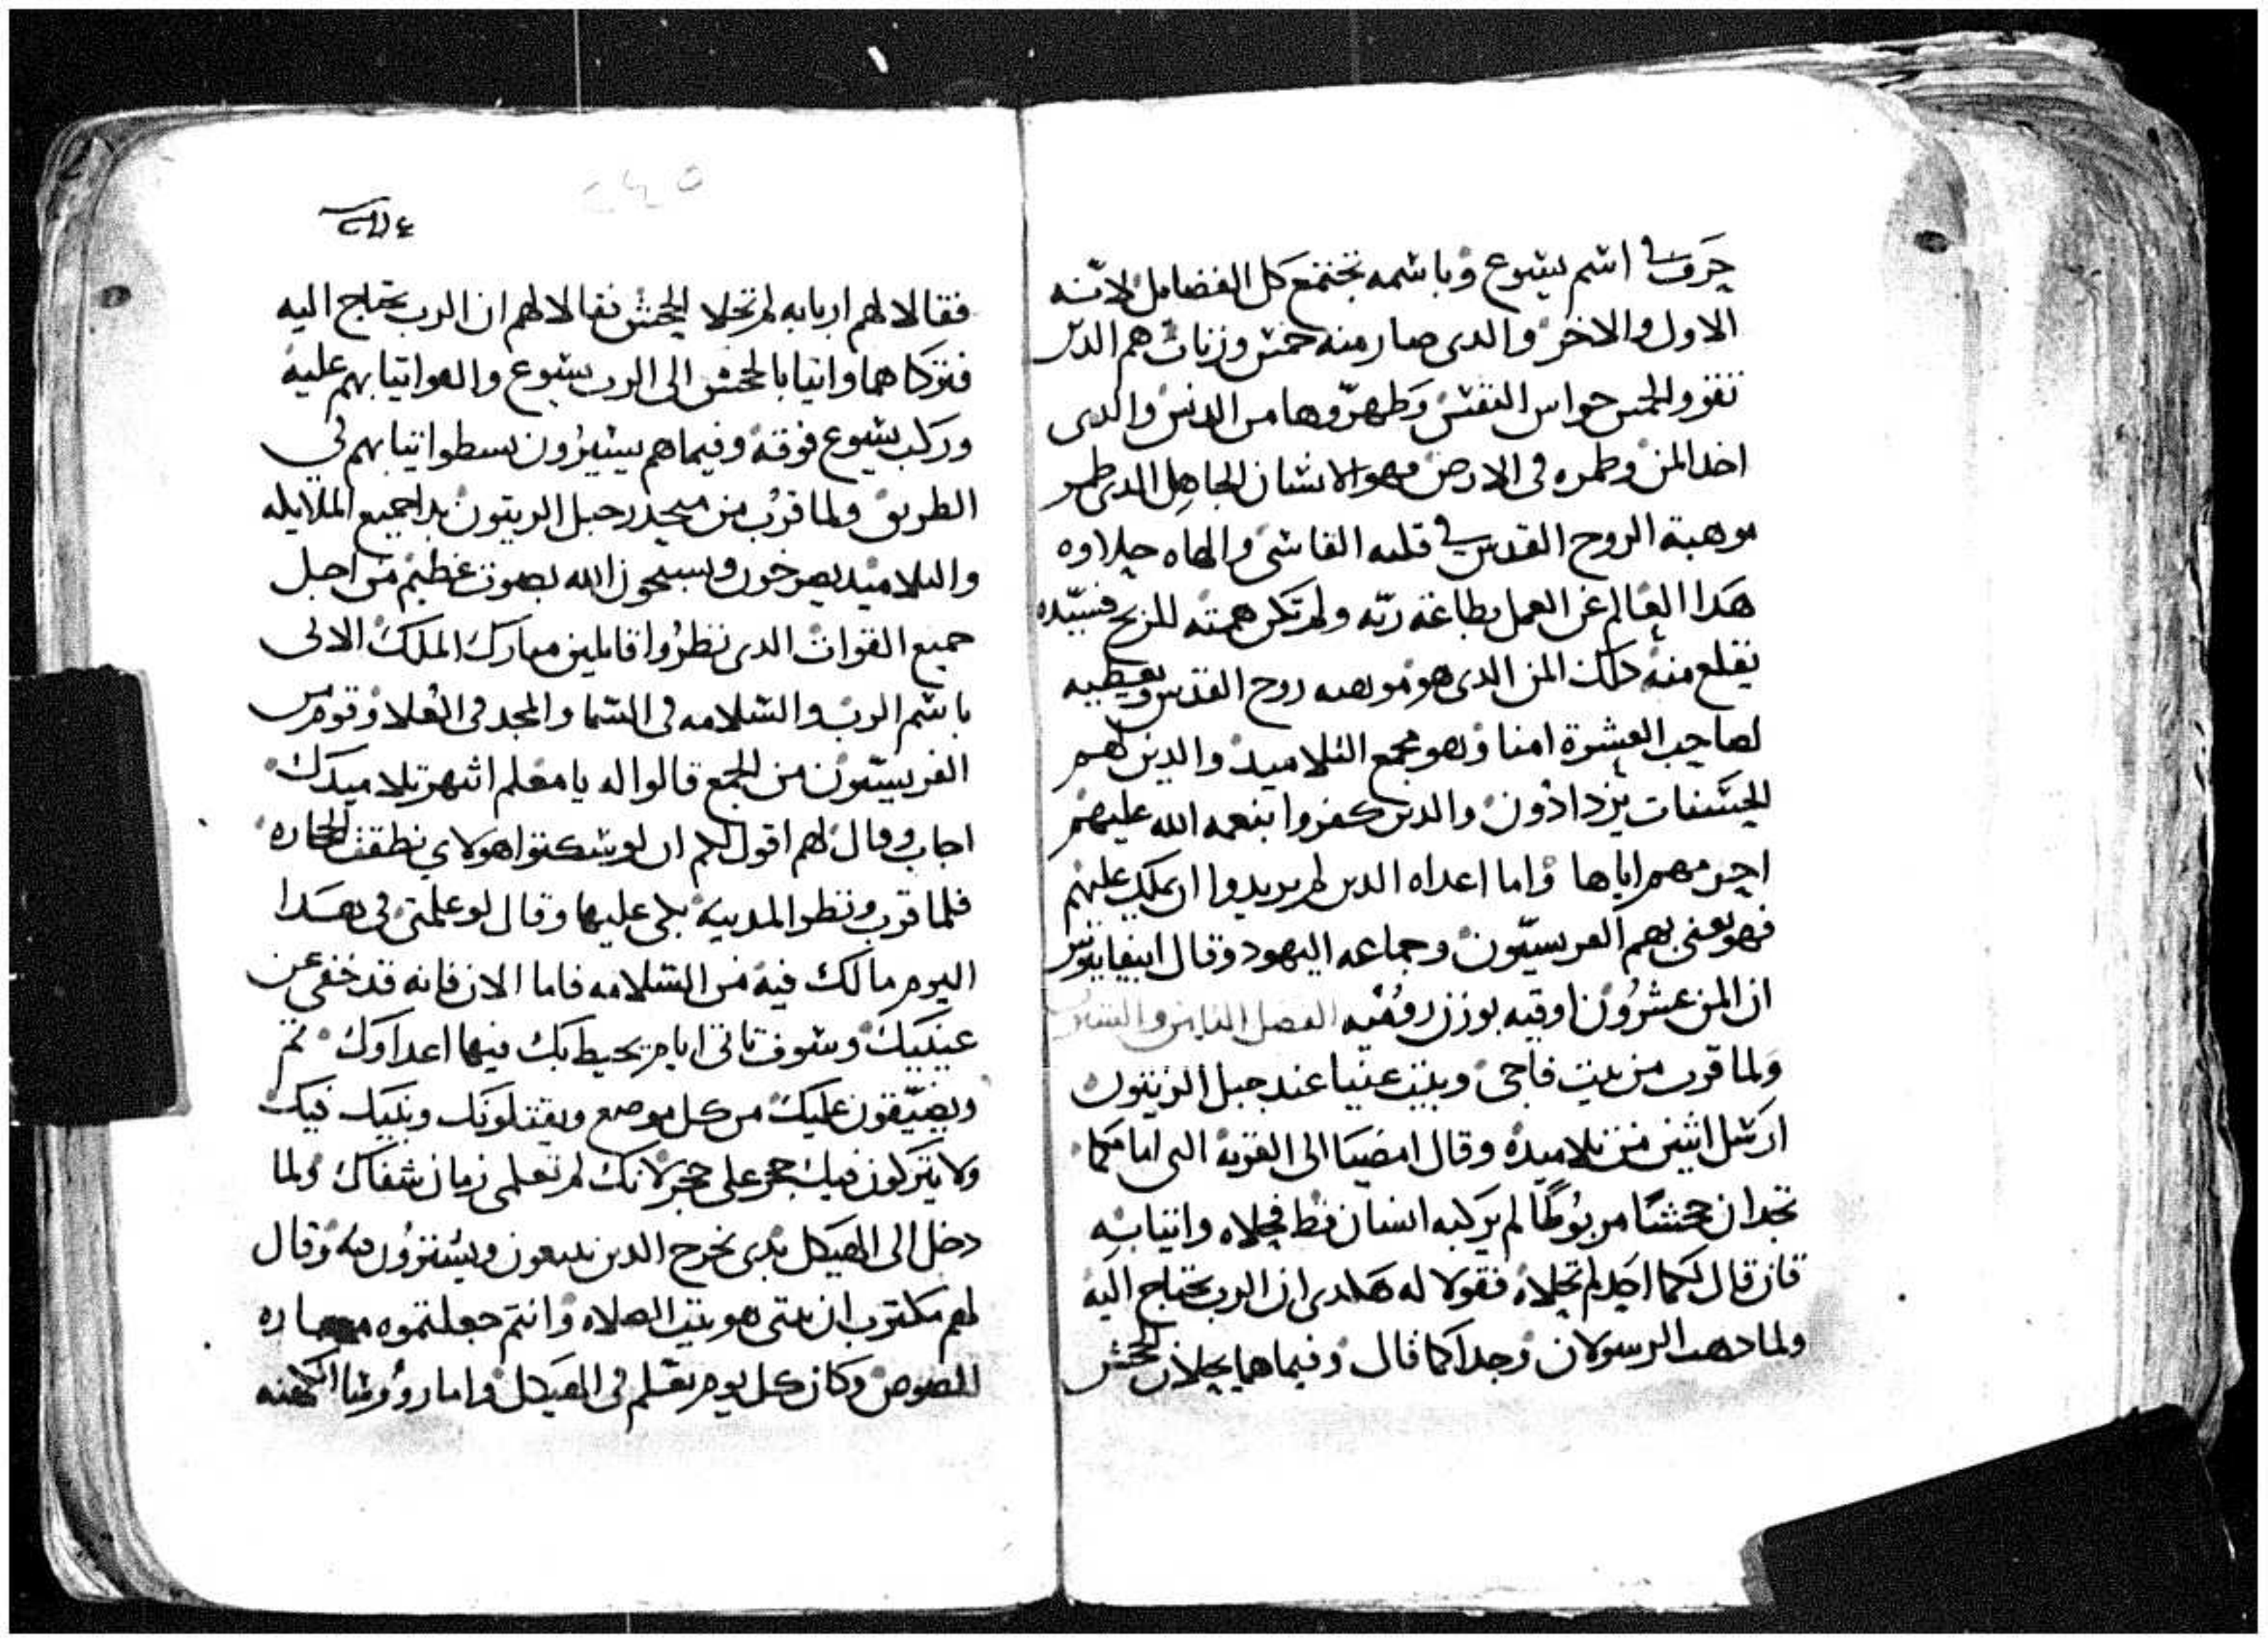 حرف في اسم يسوع وباسمه تجتمع كل الفضايل لانه
الاول والاخر والدى صار منه خمس وزنات هم الدين
نقوو الخمس حواس النفس وطهروها من الدنس والدى
اخد المن وطمره في الارض فهو الانسان الجاهل الدى طمر
موهبة الروح القدس في قلبه القاسى والهاه حلاوه
هدا العالم عن العمل بطاعة ربه ولم تكن همته للربح فسيده
يقلع منه دلك المن الدى هو موهبه روح القدس ويعطيه
لصاحب العشرة امنا وهو مجمع التلاميد والدين لهم
الحسنات يزدادون والدين كفروا بنعمه الله عليهم
احرمهم اياها واما اعداه الدين لم يريدوا ان يملك عليهم
فهو يعنى بهم الفريسيون وجماعه اليهود وقال ابيفانيوس
ان المن عشرون اوقيه بوزن روميه الفصل الثامن والستون
ولما قرب من بيت فاجى وبيت عنيا عند جبل الزيتون
ارسل اثنين من تلاميده وقال امضيا الى القرية التى امامكما
تجدان جحشا مربوطا لم يركبه انسان قط فحلاه واتيا به
فان قال لكما احد لم تحلاه فقولا له هكدى ان الرب يحتاج اليه
ولما دهب الرسولان وجدا كما قال وفيما هما يحلان الجحش
٢٤٥
فقالا لهم اربابه لم تحلا الجحش فقالا لهم ان الرب يحتاج اليه
فتركاهما واتيا بالجحش الى الرب يسوع والقوا تيابهم عليه
وركب يسوع فوقه وفيما هم يسيرون بسطوا تيابهم في
الطريق ولما قرب من منحدر جبل الزيتون بدا جميع الملا يله
والتلاميد يصرخون ويسبحون الله بصوت عظيم من اجل
جميع القوات الدى نظروا قايلين مبارك الملك الاتى
باسم الرب والسلامه في السما والمجد في العلا وقوم من
الفريسيون من الجمع قالوا له يا معلم انتهر تلاميدك
اجاب وقال لهم اقول لكم ان لو سكتوا هولاي نطقت الحجاره
فلما قرب ونظر المدينه بكى عليها وقال لو علمتى في هدا
اليوم مالك فيه من السلامه فاما الان فانه قد خفى عن
عينيك وسوف تاتى ايام يحيط بك فيها اعداوك تم
ويضيقون عليك من كل موضع ويقتلونك وبنيك فيك
ولا يتركون فيك حجر على حجر لانك لم تعلمى زمان شفاك ولما
دخل الى الهيكل بدى يخرج الدين يبيعون ويشترون فيه وقال
لهم مكتوب ان بيتى هو بيت الصلاه وانتم جعلتموه مغاره
للصوص وكان كل يوم يعلم في الهيكل واما رووسا الكهنه